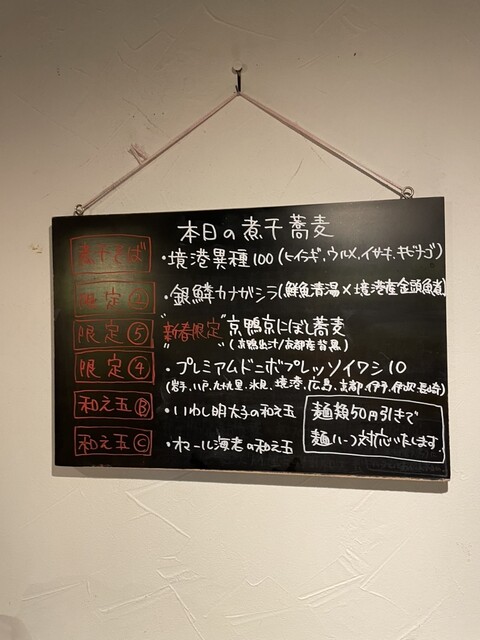 本日の煮干蕎麦
煮干そば ・境港異種100(ヒイラギ、ウルメ、イサキ、キビナゴ)
限定② ・銀鱗カナガシラ(鮮魚清湯×境港産金頭魚煮)
限定⑤ 新春限定 "京鴨京にぼし蕎麦"
(京鴨出汁/京都産背黒)
限定④ ・プレミアムドニボプレッソイワシ10
(岩手、八戸、九十九里、氷見、境港、広島、京都、伊予、伊吹、長崎)
和え玉Ⓑ ・いわし明太子の和え玉
和え玉Ⓒ ・オマール海老の和え玉
麺類50円引きで
対応いたします。